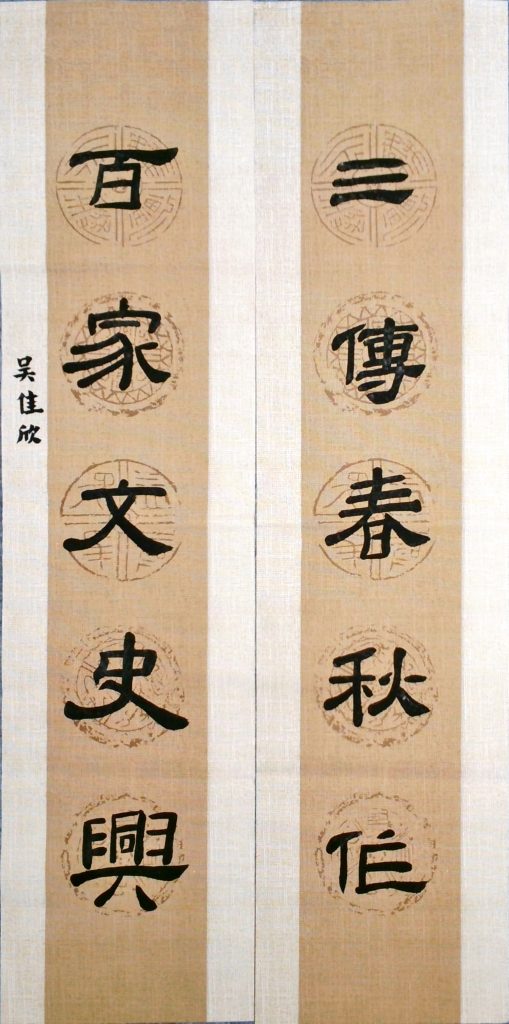 三傳春秋作
百家文史興
吳佳欣